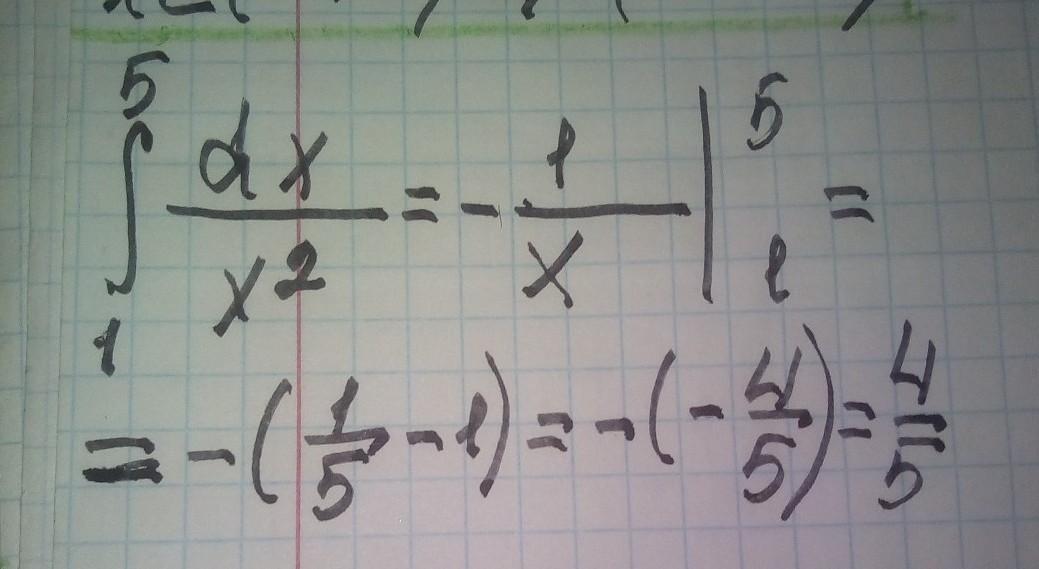 ∫₁⁵ dx/x² = -1/x |₁⁵ =
= -(1/5 - 1) = -(-4/5) = 4/5